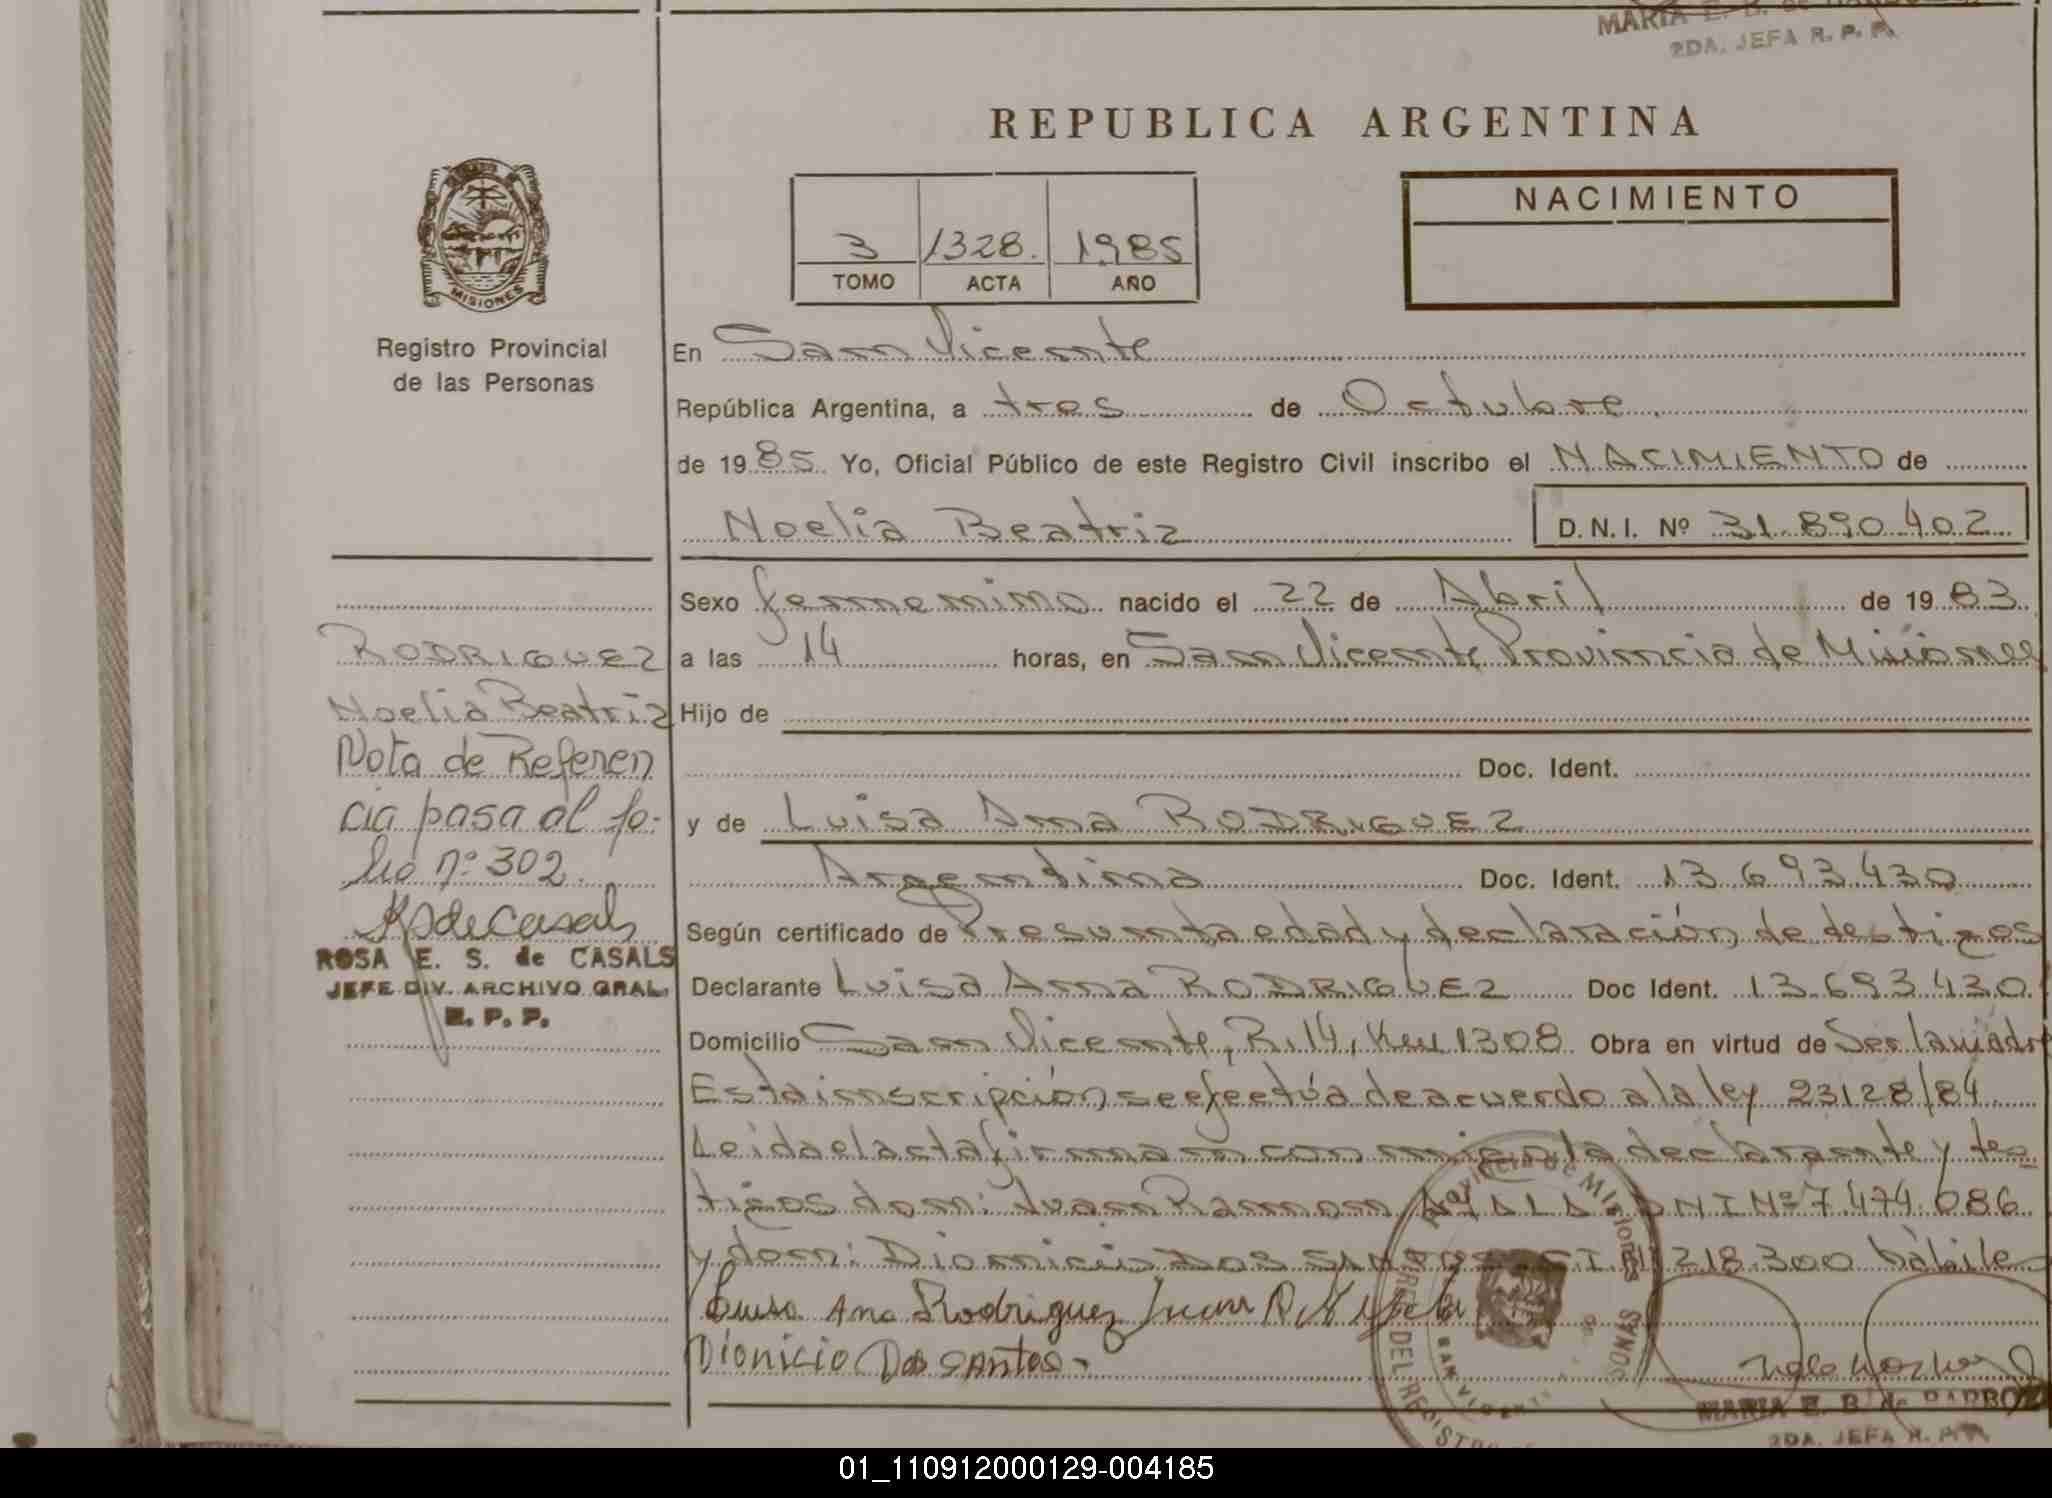 MARIA E. B. de
2DA. JEFA R. P. P.
REPUBLICA ARGENTINA
MISIONES
Registro Provincial
de las Personas
3 1328. 1985
TOMO ACTA AÑO
NACIMIENTO
En San Vicente
República Argentina, a tres de Octubre.
de 1985. Yo, Oficial Público de este Registro Civil inscribo el NACIMIENTO de
Noelia Beatriz D. N. I. Nº 31.890.402
Sexo femenino nacido el 22 de Abril de 1983
a las 14 horas, en San Vicente Provincia de Misiones
Hijo de
Doc. Ident.
y de Luisa Ana RODRIGUEZ
Argentina Doc. Ident. 13.693.430
Según certificado de Presunta edad y declaración de testigos
Declarante Luisa Ana RODRIGUEZ Doc Ident. 13.693.430.
Domicilio San Vicente, R. 14, Km 1308 Obra en virtud de Ser la madre
Esta inscripción se efectúa de acuerdo a la ley 23128/84
Leida el acta firman con migo la declarante y tes-
tigos don: Juan Ramon AYALA DNI Nº 7.474.086
y don: Dionicio DOS SANTOS CI 218.300 hábiles
Luisa Ana Rodriguez Juan R Ayala
Dionicio Dos Santos.
RODRIGUEZ
Noelia Beatriz
Nota de Referen
cia pasa al fo-
lio nº 302.
RSdeCasals
ROSA E. S. de CASALS
JEFE DIV. ARCHIVO GRAL.
R. P. P.
PROVINCIA DE MISIONES
DEL REGISTRO
SAN VICENTE
MARIA E. B. de BARBOZA
2DA. JEFA R. P. P.
01_110912000129-004185